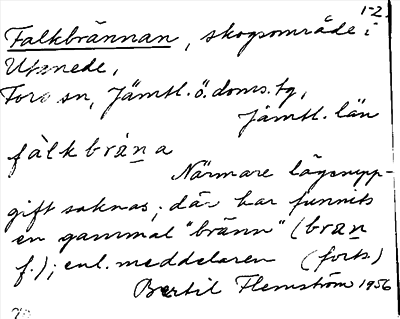 1-2.
Falkbrännan, skogsområde i
Utanede,
Fors sn, Jämtl. ö. doms. tg,
Jämtl. län
fàlkbräna
Närmare lägesupp-
gift saknas; där har funnits
en gammal "bränn" (bran
f.); enl. meddelaren (forts)
Bertil Flemström 1956